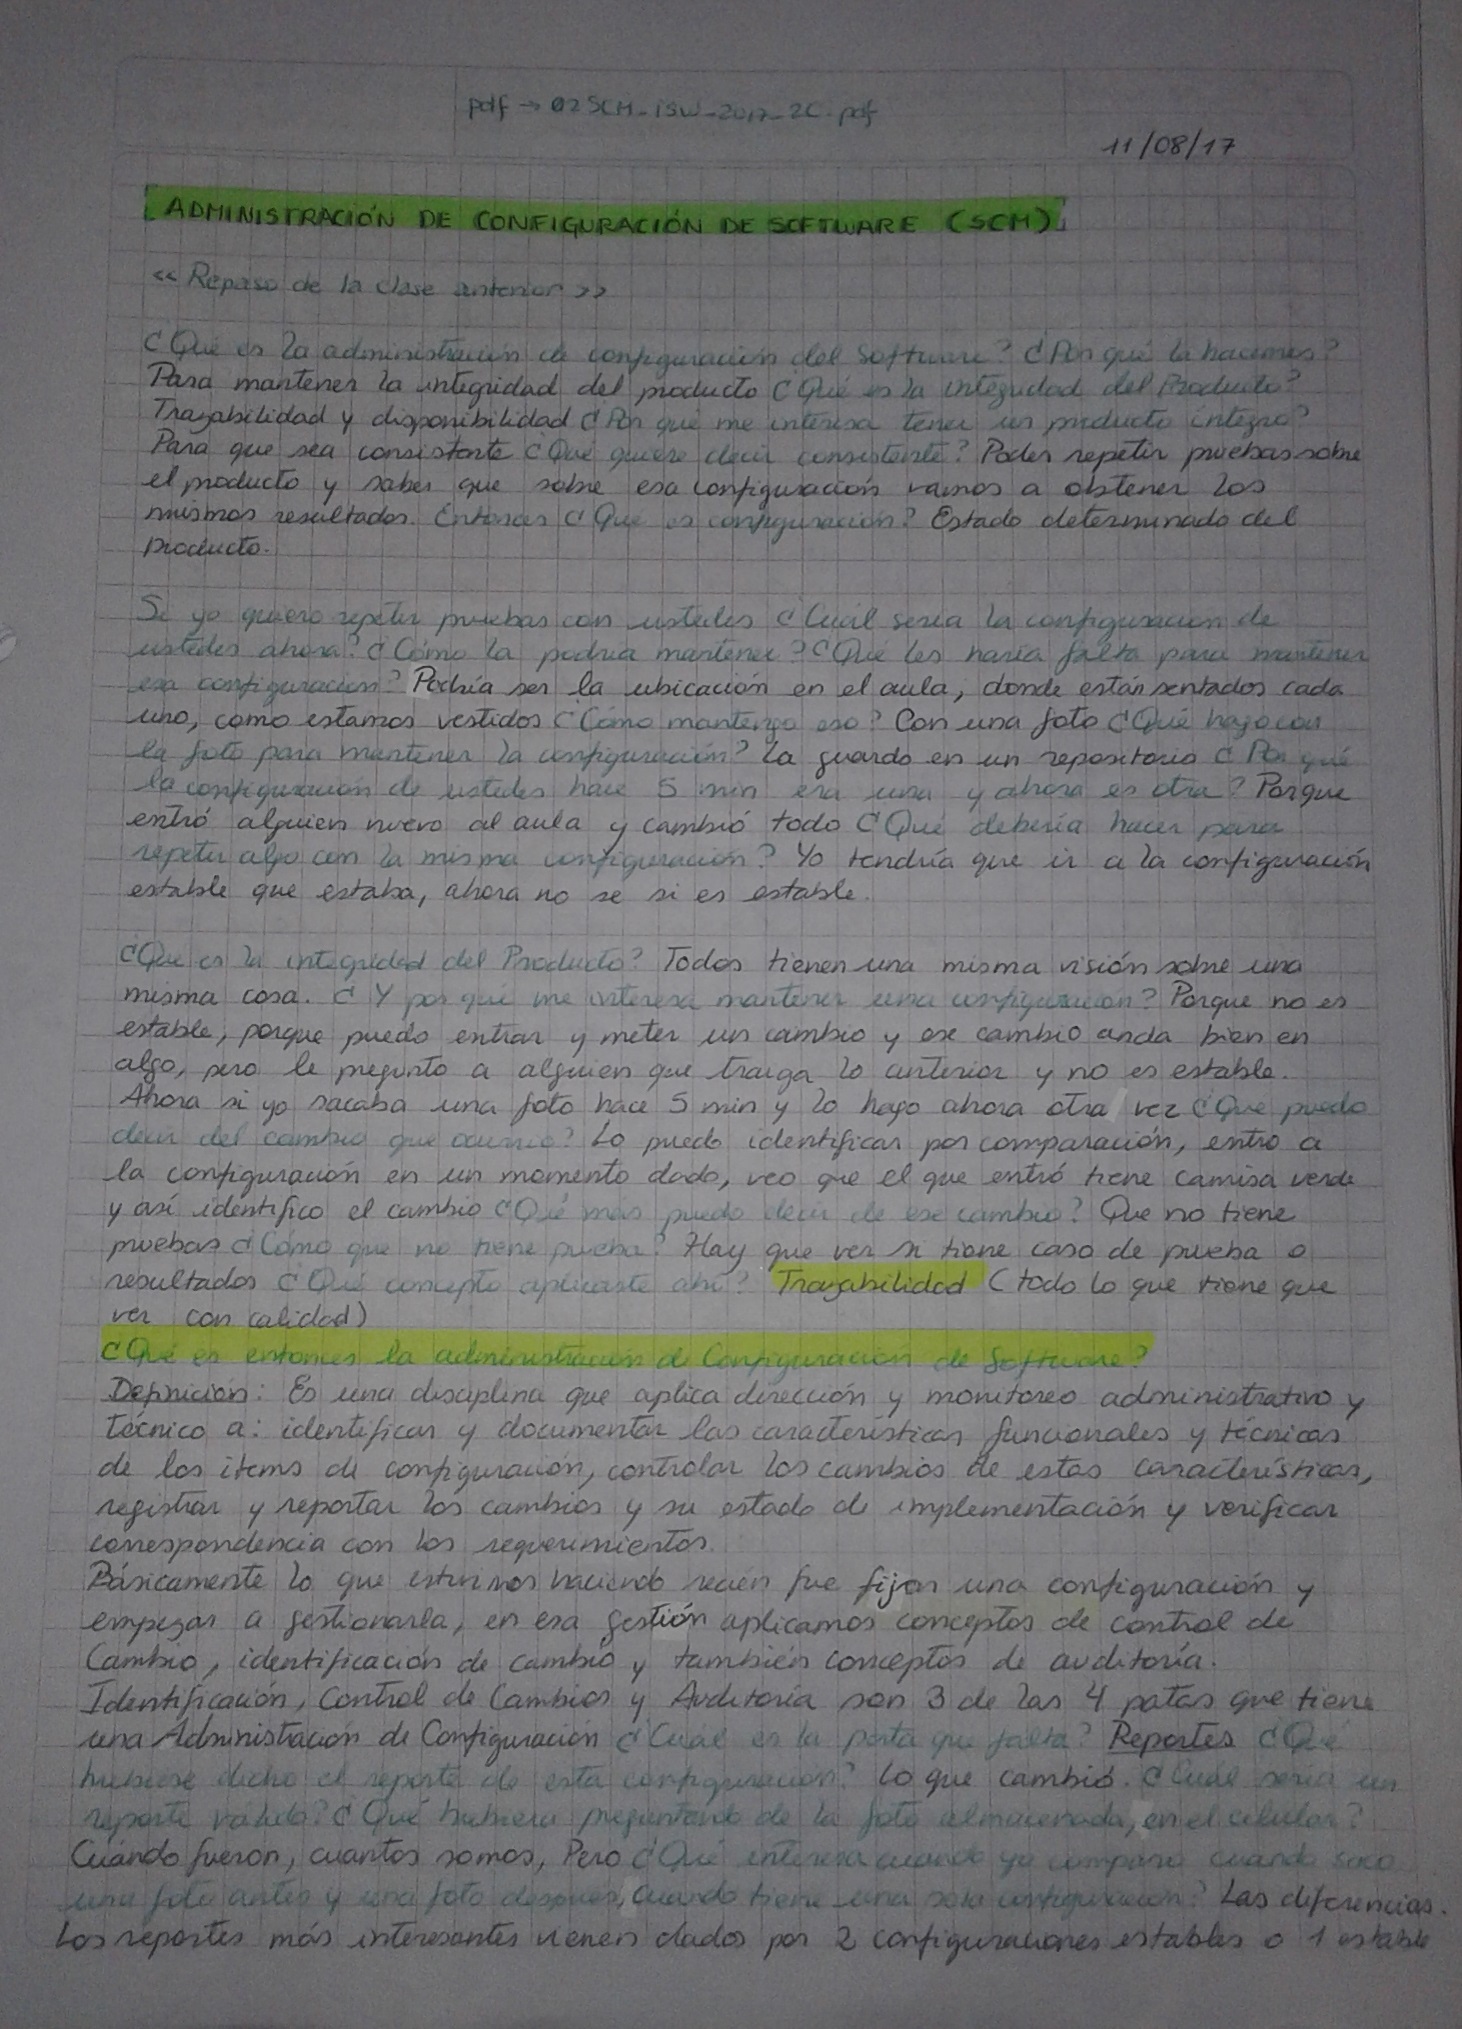 pdf → 02SCM_ISW_2017_2C.pdf
11/08/17
ADMINISTRACIÓN DE CONFIGURACIÓN DE SOFTWARE (SCM)
<< Repaso de la clase anterior >>
¿Qué es la administración de configuración del Software? ¿Por qué la hacemos?
Para mantener la integridad del producto ¿Qué es la integridad del Producto?
Trazabilidad y disponibilidad ¿Por qué me interesa tener un producto íntegro?
Para que sea consistente ¿Qué quiere decir consistente? Poder repetir pruebas sobre
el producto y saber que sobre esa configuración vamos a obtener los
mismos resultados. Entonces ¿Qué es configuración? Estado determinado del
producto.
Si yo quiero repetir pruebas con ustedes ¿Cuál sería la configuración de
ustedes ahora? ¿Cómo la podría mantener? ¿Qué les haría falta para mantener
esa configuración? Podría ser la ubicación en el aula, donde están sentados cada
uno, como estamos vestidos ¿Cómo mantengo eso? Con una foto ¿Qué hago con
la foto para mantener la configuración? La guardo en un repositorio ¿Por qué
la configuración de ustedes hace 5 min era una y ahora es otra? Porque
entró alguien nuevo al aula y cambió todo ¿Qué debería hacer para
repetir algo con la misma configuración? Yo tendría que ir a la configuración
estable que estaba, ahora no se si es estable.
¿Qué es la integridad del Producto? Todos tienen una misma visión sobre una
misma cosa. ¿Y por qué me interesa mantener una configuración? Porque no es
estable, porque puedo entrar y meter un cambio y ese cambio anda bien en
algo, pero le pregunto a alguien que traiga lo anterior y no es estable.
Ahora si yo sacaba una foto hace 5 min y lo hago ahora otra vez ¿Qué puedo
decir del cambio que ocurrió? Lo puedo identificar por comparación, entro a
la configuración en un momento dado, veo que el que entró tiene camisa verde
y así identifico el cambio ¿Qué más puedo decir de ese cambio? Que no tiene
pruebas ¿Cómo que no tiene prueba? Hay que ver si tiene caso de prueba o
resultados ¿Qué concepto aplicaste ahí? Trazabilidad (todo lo que tiene que
ver con calidad)
¿Qué es entonces la administración de Configuración de Software?
Definición: Es una disciplina que aplica dirección y monitoreo administrativo y
técnico a: identificar y documentar las características funcionales y técnicas
de los items de configuración, controlar los cambios de estas características,
registrar y reportar los cambios y su estado de implementación y verificar
correspondencia con los requerimientos.
Básicamente lo que estuvimos haciendo recién fue fijar una configuración y
empezar a gestionarla, en esa gestión aplicamos conceptos de control de
Cambio, identificación de cambio y también conceptos de auditoría.
Identificación, Control de Cambios y Auditoría son 3 de las 4 patas que tiene
una Administración de Configuración ¿Cuál es la pata que falta? Reportes ¿Qué
hubiese dicho el reporte de esta configuración? Lo que cambió. ¿Cuál sería un
reporte válido? ¿Qué hubiera preguntado de la foto almacenada, en el celular?
Cuándo fueron, cuantos somos, Pero ¿Qué interesa cuando yo comparo cuando saco
una foto antes y una foto después, cuando tiene una sola configuración? Las diferencias.
Los reportes más interesantes vienen dados por 2 configuraciones estables o 1 estable